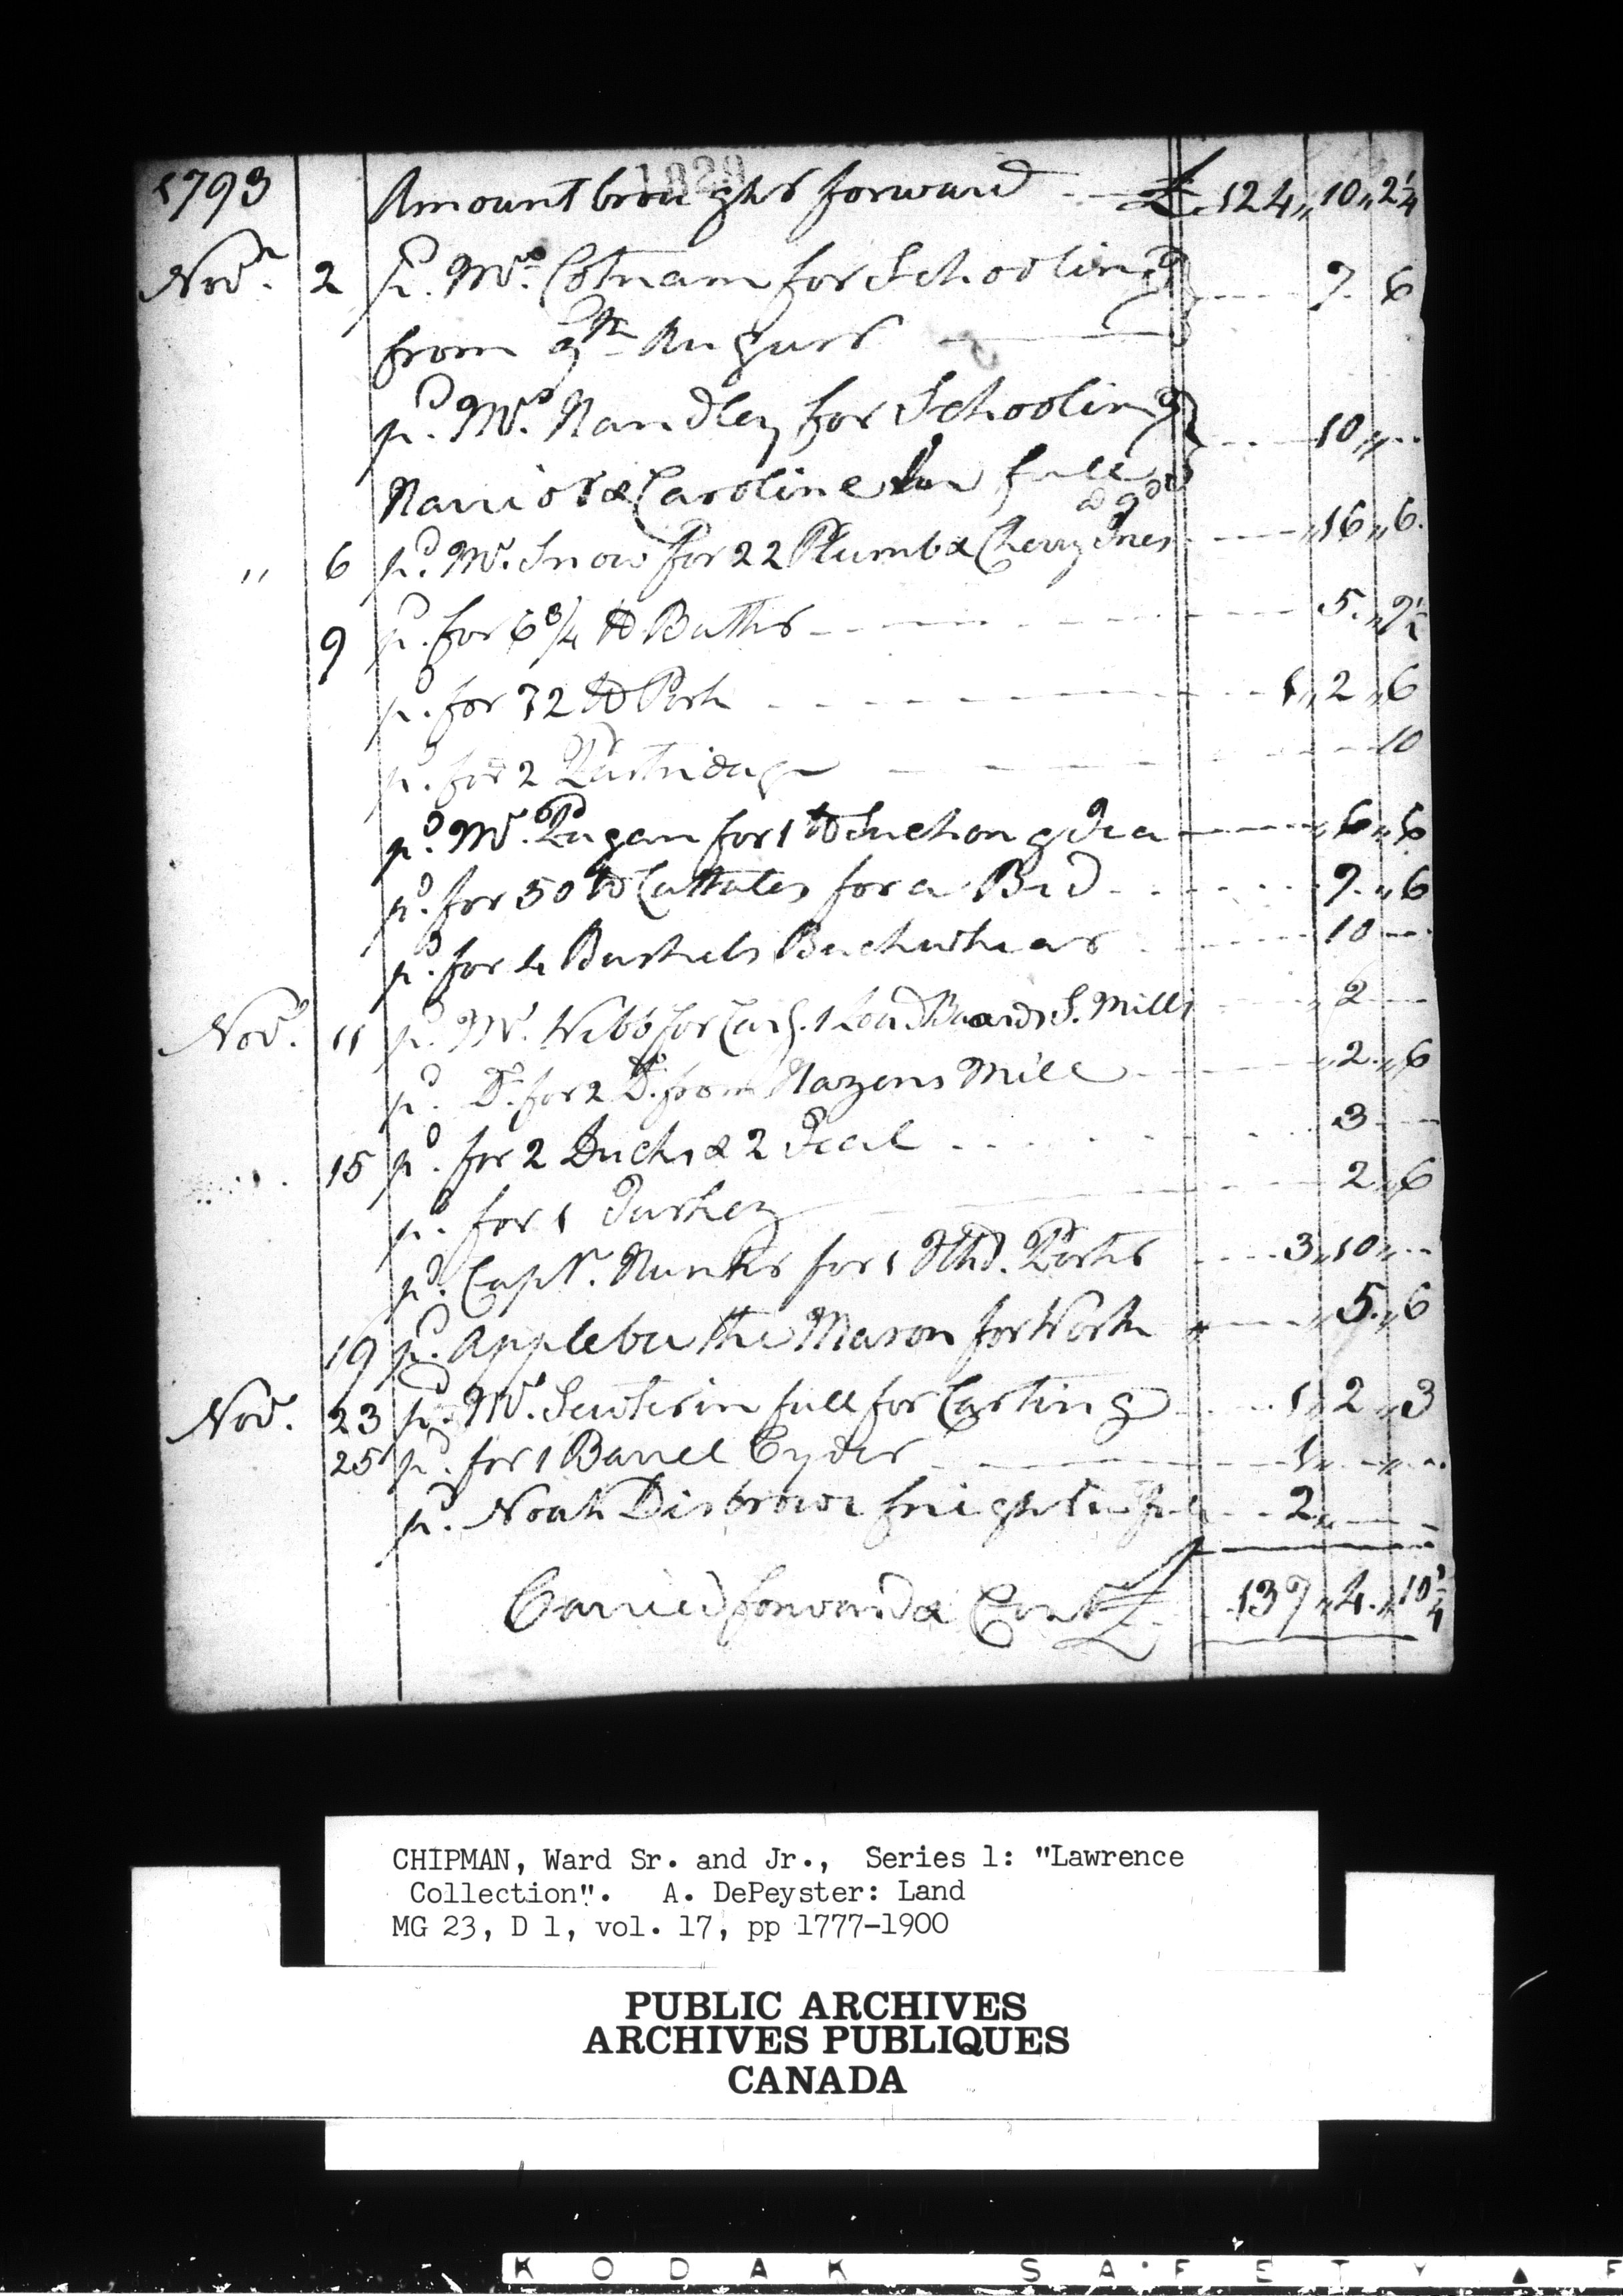 1829
1793 Amount brought forward £ 124 „ 10 „ 2 1/4
Novr. 2 pd. Mrs. Cotnam for Schooling 7 6
from 9th August
pd. Mrs. Handley for Schooling 10 „
Harriot & Caroline in full
@ 9d
„ 6 pd. Mr. Snow for 22 Plumb & Cherry Trees „ 16 „ 6
9 pd. for 6 3/4 lb Butter 5 „ 7 1/2
pd. for 72 lb Pork 1 „ 2 „ 6
pd. for 2 Partridge 10
pd. Mr. Pagan for 1 lb Suchong Tea „ 6 „ 6
pd. for 50 lb Cattales for a Bed 7 „ 6
pd. for 4 Bushels Buckwheat 10
Novr. 11 pd. Mr. Webb for Cartg. 1 Load Boards S. Mills 2
pd. Do. for 2 Do. from Hazens Mill „ 2 „ 6
15 pd. for 2 Ducks & 2 Teal 3
pd. for 1 Turkey 2 „ 6
pd. Capt. Hunter for 1 Hhd. Porter 3 „ 10 „
19 pd. Applebee the Mason for Work „ 5 „ 6
Novr. 23 pd. Mr. Seuter in full for Carting 1 „ 2 „ 3
25 pd. for 1 Barrel Cyder 1 „ „
pd. Noah Disbrowe freight 2 „
Carried forward & Cont £ 137 „ 4 „ 10 3/4
CHIPMAN, Ward Sr. and Jr., Series 1: "Lawrence
Collection". A. DePeyster: Land
MG 23, D 1, vol. 17, pp 1777-1900
PUBLIC ARCHIVES
ARCHIVES PUBLIQUES
CANADA
KODAK SAFETY ▲ F